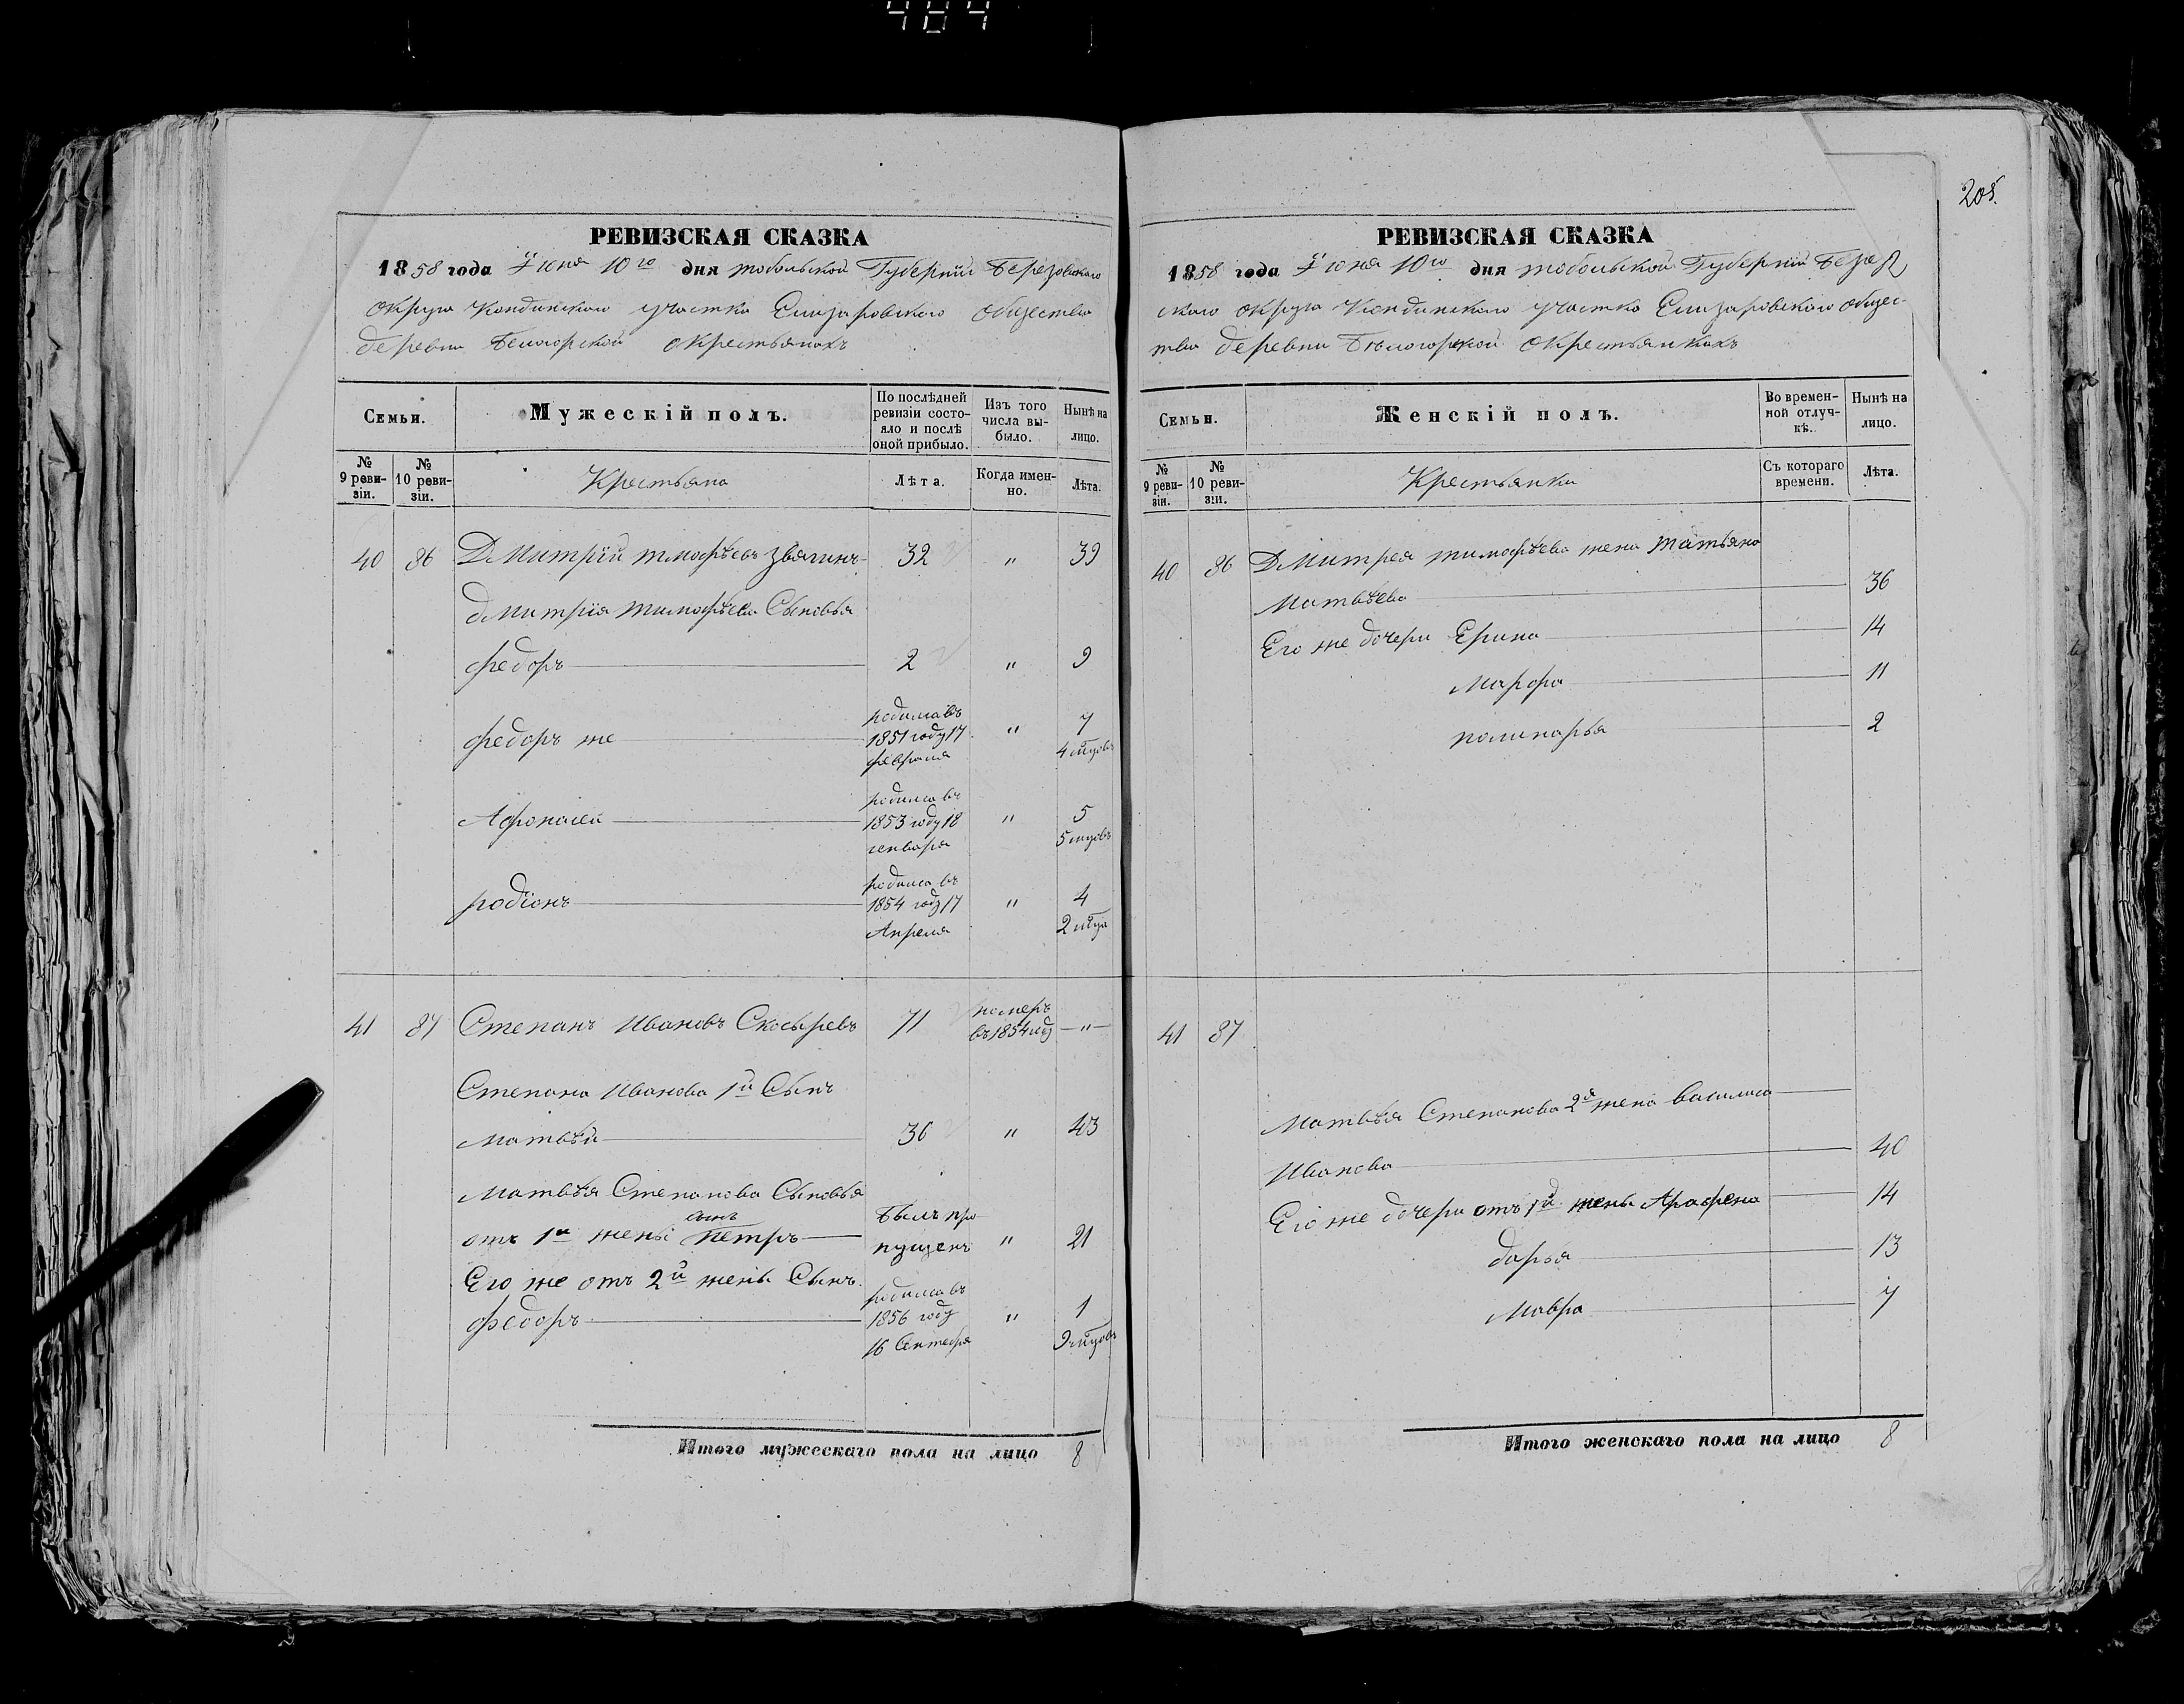 484
205.
РЕВИЗСКАЯ СКАЗКА
1858 года Іюня 10го дня тобольской Губерніи Березовскаго
округа Кондинскаго участка Елизаровскаго общества
деревни Белогорской окрестьянахъ
Семьи.
Мужескій полъ.
По послѣдней ревизіи состояло и послѣ оной прибыло.
Изъ того числа выбыло.
Нынѣ на лицо.
№ 9 ревизіи.
№ 10 ревизіи.
Крестьяна
Лѣта.
Когда именно.
Лѣта.
40 86 Дмитрій тимофѣевъ Звягинъ 32 " 39
дмитрія тимофѣева Сыновья
федоръ 2 " 9
федоръ же родилса въ 1851 году 17 февраля " 7 4 мцовъ
Афонасей родилса въ 1853 году 18 генваря " 5 5 мцовъ
родіонъ родилса въ 1854 году 17 Апреля " 4 2 мца
41 87 Степанъ Ивановъ Скосыревъ 71 померъ въ 1854 году — " —
Степана Иванова 1й Сынъ
матвѣй 36 " 43
матвѣя Степанова Сыновья
сынъ
отъ 1й жены петръ былъ пропущенъ " 21
Его же отъ 2й жены Сынъ
федоръ родилса въ 1856 году 16 Сентебря " 1 9 мцовъ
Итого мужескаго пола на лицо 8
РЕВИЗСКАЯ СКАЗКА
1858 года Іюня 10го дня тобольской Губерніи Берез
скаго округа Кондинскаго участка Елизаровскаго общес-
тва деревни Бѣлогорской окрестьянкахъ
Семьи.
Женскій полъ.
Во временной отлучкѣ.
Нынѣ на лицо.
№ 9 ревизіи.
№ 10 ревизіи.
Крестьянки
Съ котораго времени.
Лѣта.
40 86 Дмитрея тимофѣева жена татьяна
матвѣева 36
Его же дочери Ерина 14
марфа 11
полинарья 2
41 87
матвѣя Степанова 2я жена василиса
Иванова 40
Его же дочери отъ 1й жены Аграфена 14
дарья 13
мавра 7
Итого женскаго пола на лицо 8